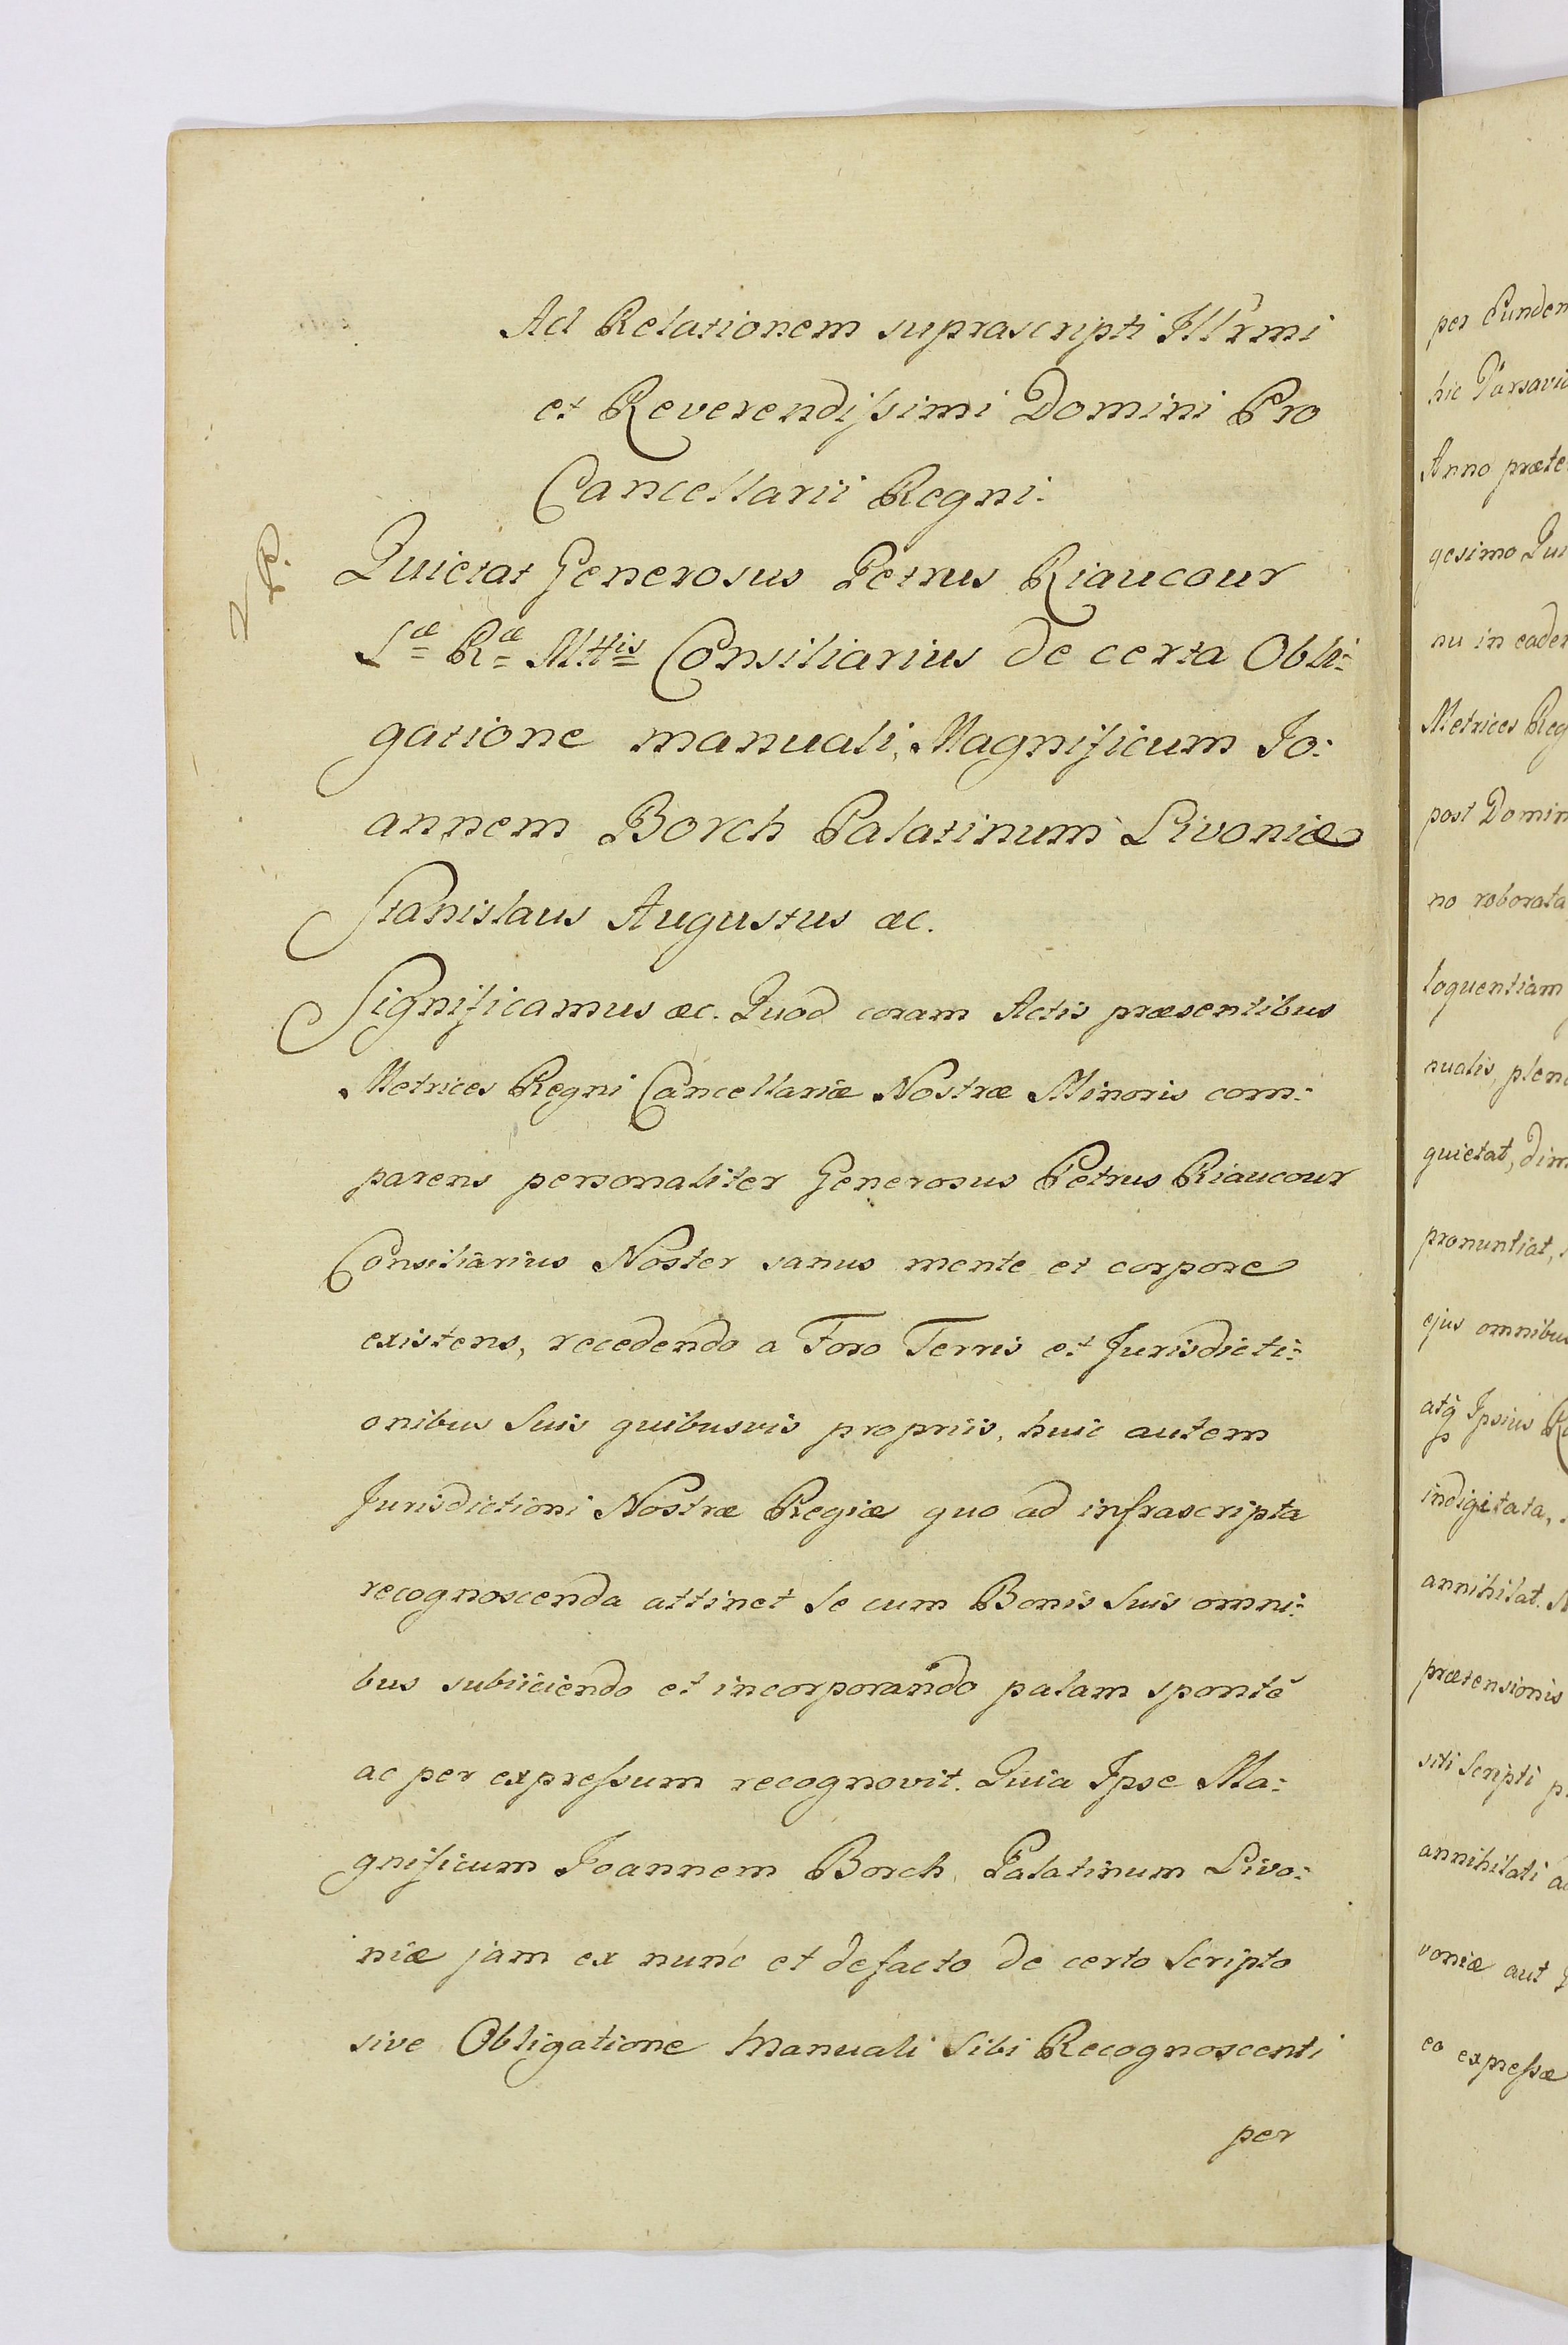 Ad Relationem suprascripti Ill'rmi
et Reverendiſsimi Domini Pro
Cancellarii Regni.
Quietat Generosus Petrus Riaucour
Sæ Ræ Mttis Consiliarius de certa Obli:
gatione manuali, Magnificum Jo:
annem Borch Palatinum Livoniæ
Stanislaus Augustus æc.
Significamus æc. Quod coram Actis præsentibus
Metrices Regni Cancellariæ Nostræ Minoris com:
parens personaliter Generosus Petrus Riaucour
Consiliarius Noster sanus mente et corpore
existens, recedendo a Foro Terris et Jurisdicti:
onibus Suis quibusvis propriis, huic autem
Jurisdictioni Nostræ Regiæ quo ad infrascripta
recognoscenda attinet Se cum Bonis Suis omni:
bus subiiciendo et incorporando palam spontè
ac per expreſsum recognovit. Quia Ipse Ma:
gnificum Joannem Borch Palatinum Livo:
niæ jam ex nunc et defacto de certo Scripto
sive Obligatione Manuali Sibi Recognoscenti
per
per Eundem
hic Varsavi
Anno præte
gesimo Qui
nu in eadem
Metrices Reg
post Domin
no roborata
loquentiam
nualis, plen
quietat, dim
pronuntiat,
ejus omnibus
atq Ipsius
indigitata,
annihilat.
prætensionis
siti Scripti p
annihilati a
voniæ aut
eo expreſsæ